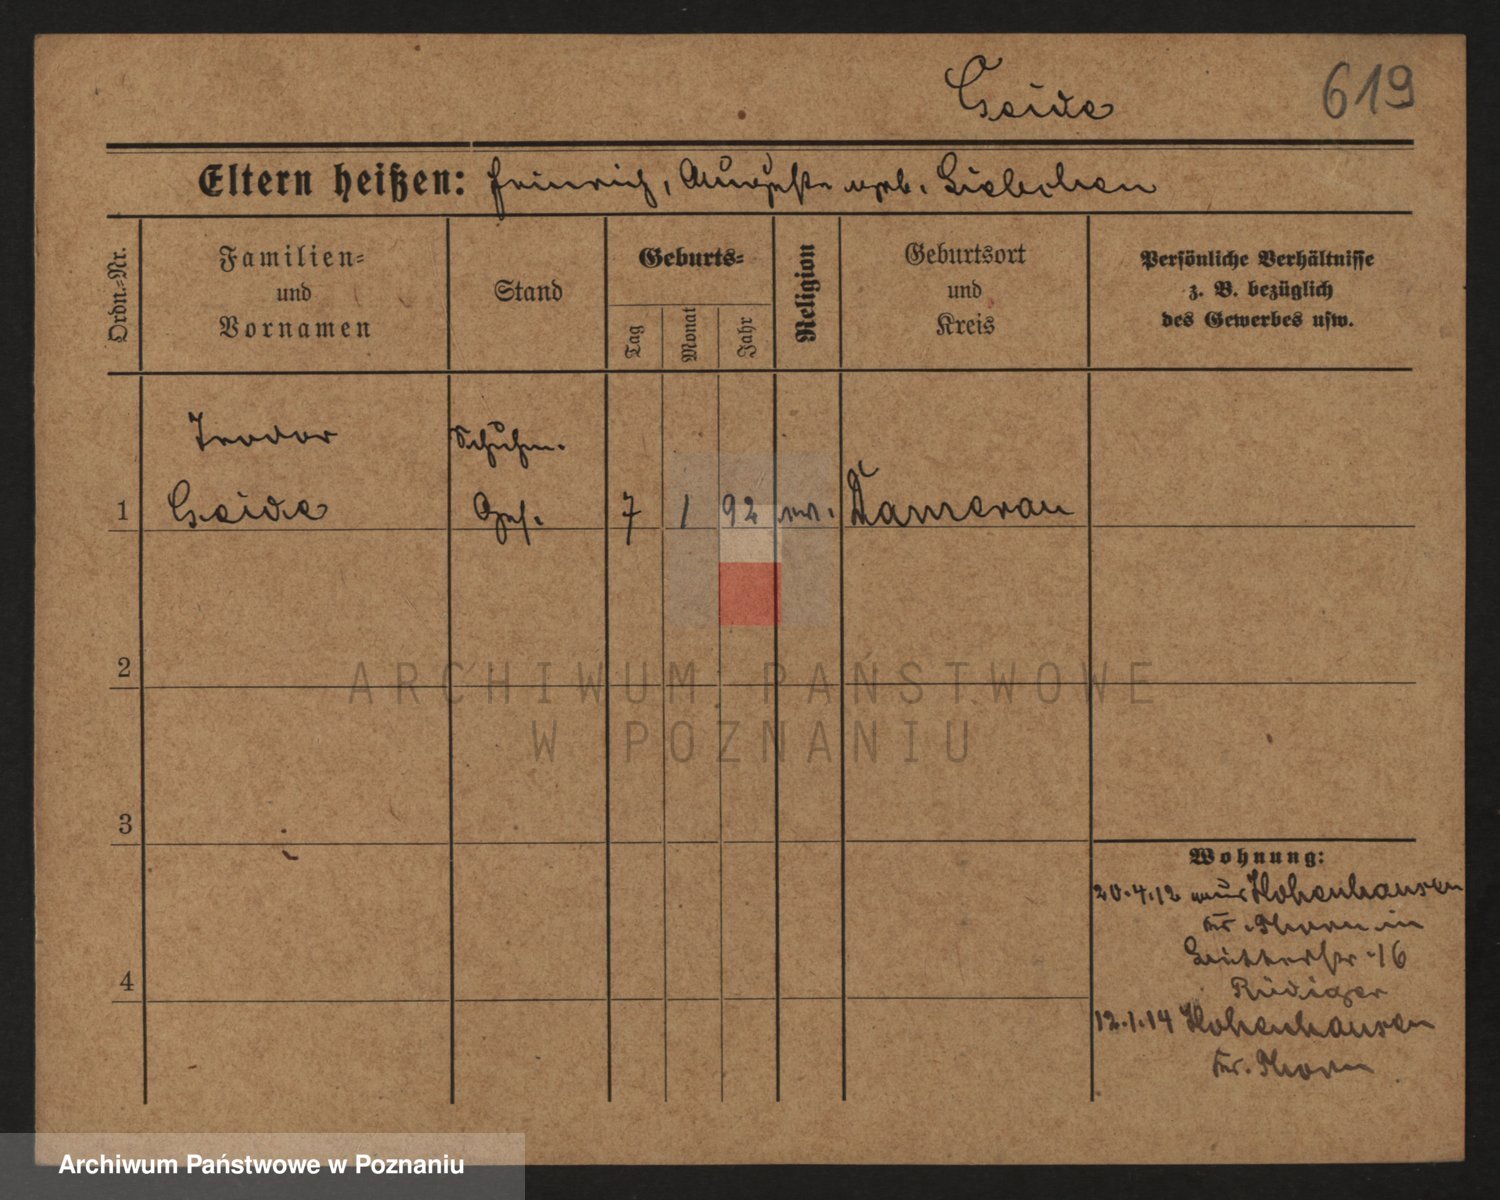 Geide 619
Eltern heißen: Heinrich, Auguste geb. Liebchen
Ordn.-Nr.
Familien-
und
Vornamen
Stand
Geburts-
Tag
Monat
Jahr
Religion
Geburtsort
und
Kreis
Persönliche Verhältnisse
z. B. bezüglich
des Gewerbes usw.
Teodor Schuhm.
1 Geide Ges. 7 1 92 ev. Damerau
2
ARCHIWUM PAŃSTWOWE
W POZNANIU
3
Wohnung:
20.4.12 aus Hohenhausen
Kr. Thorn in
16
Rüdiger
4
12.1.14 Hohenhausen
Kr. Thorn
Archiwum Państwowe w Poznaniu